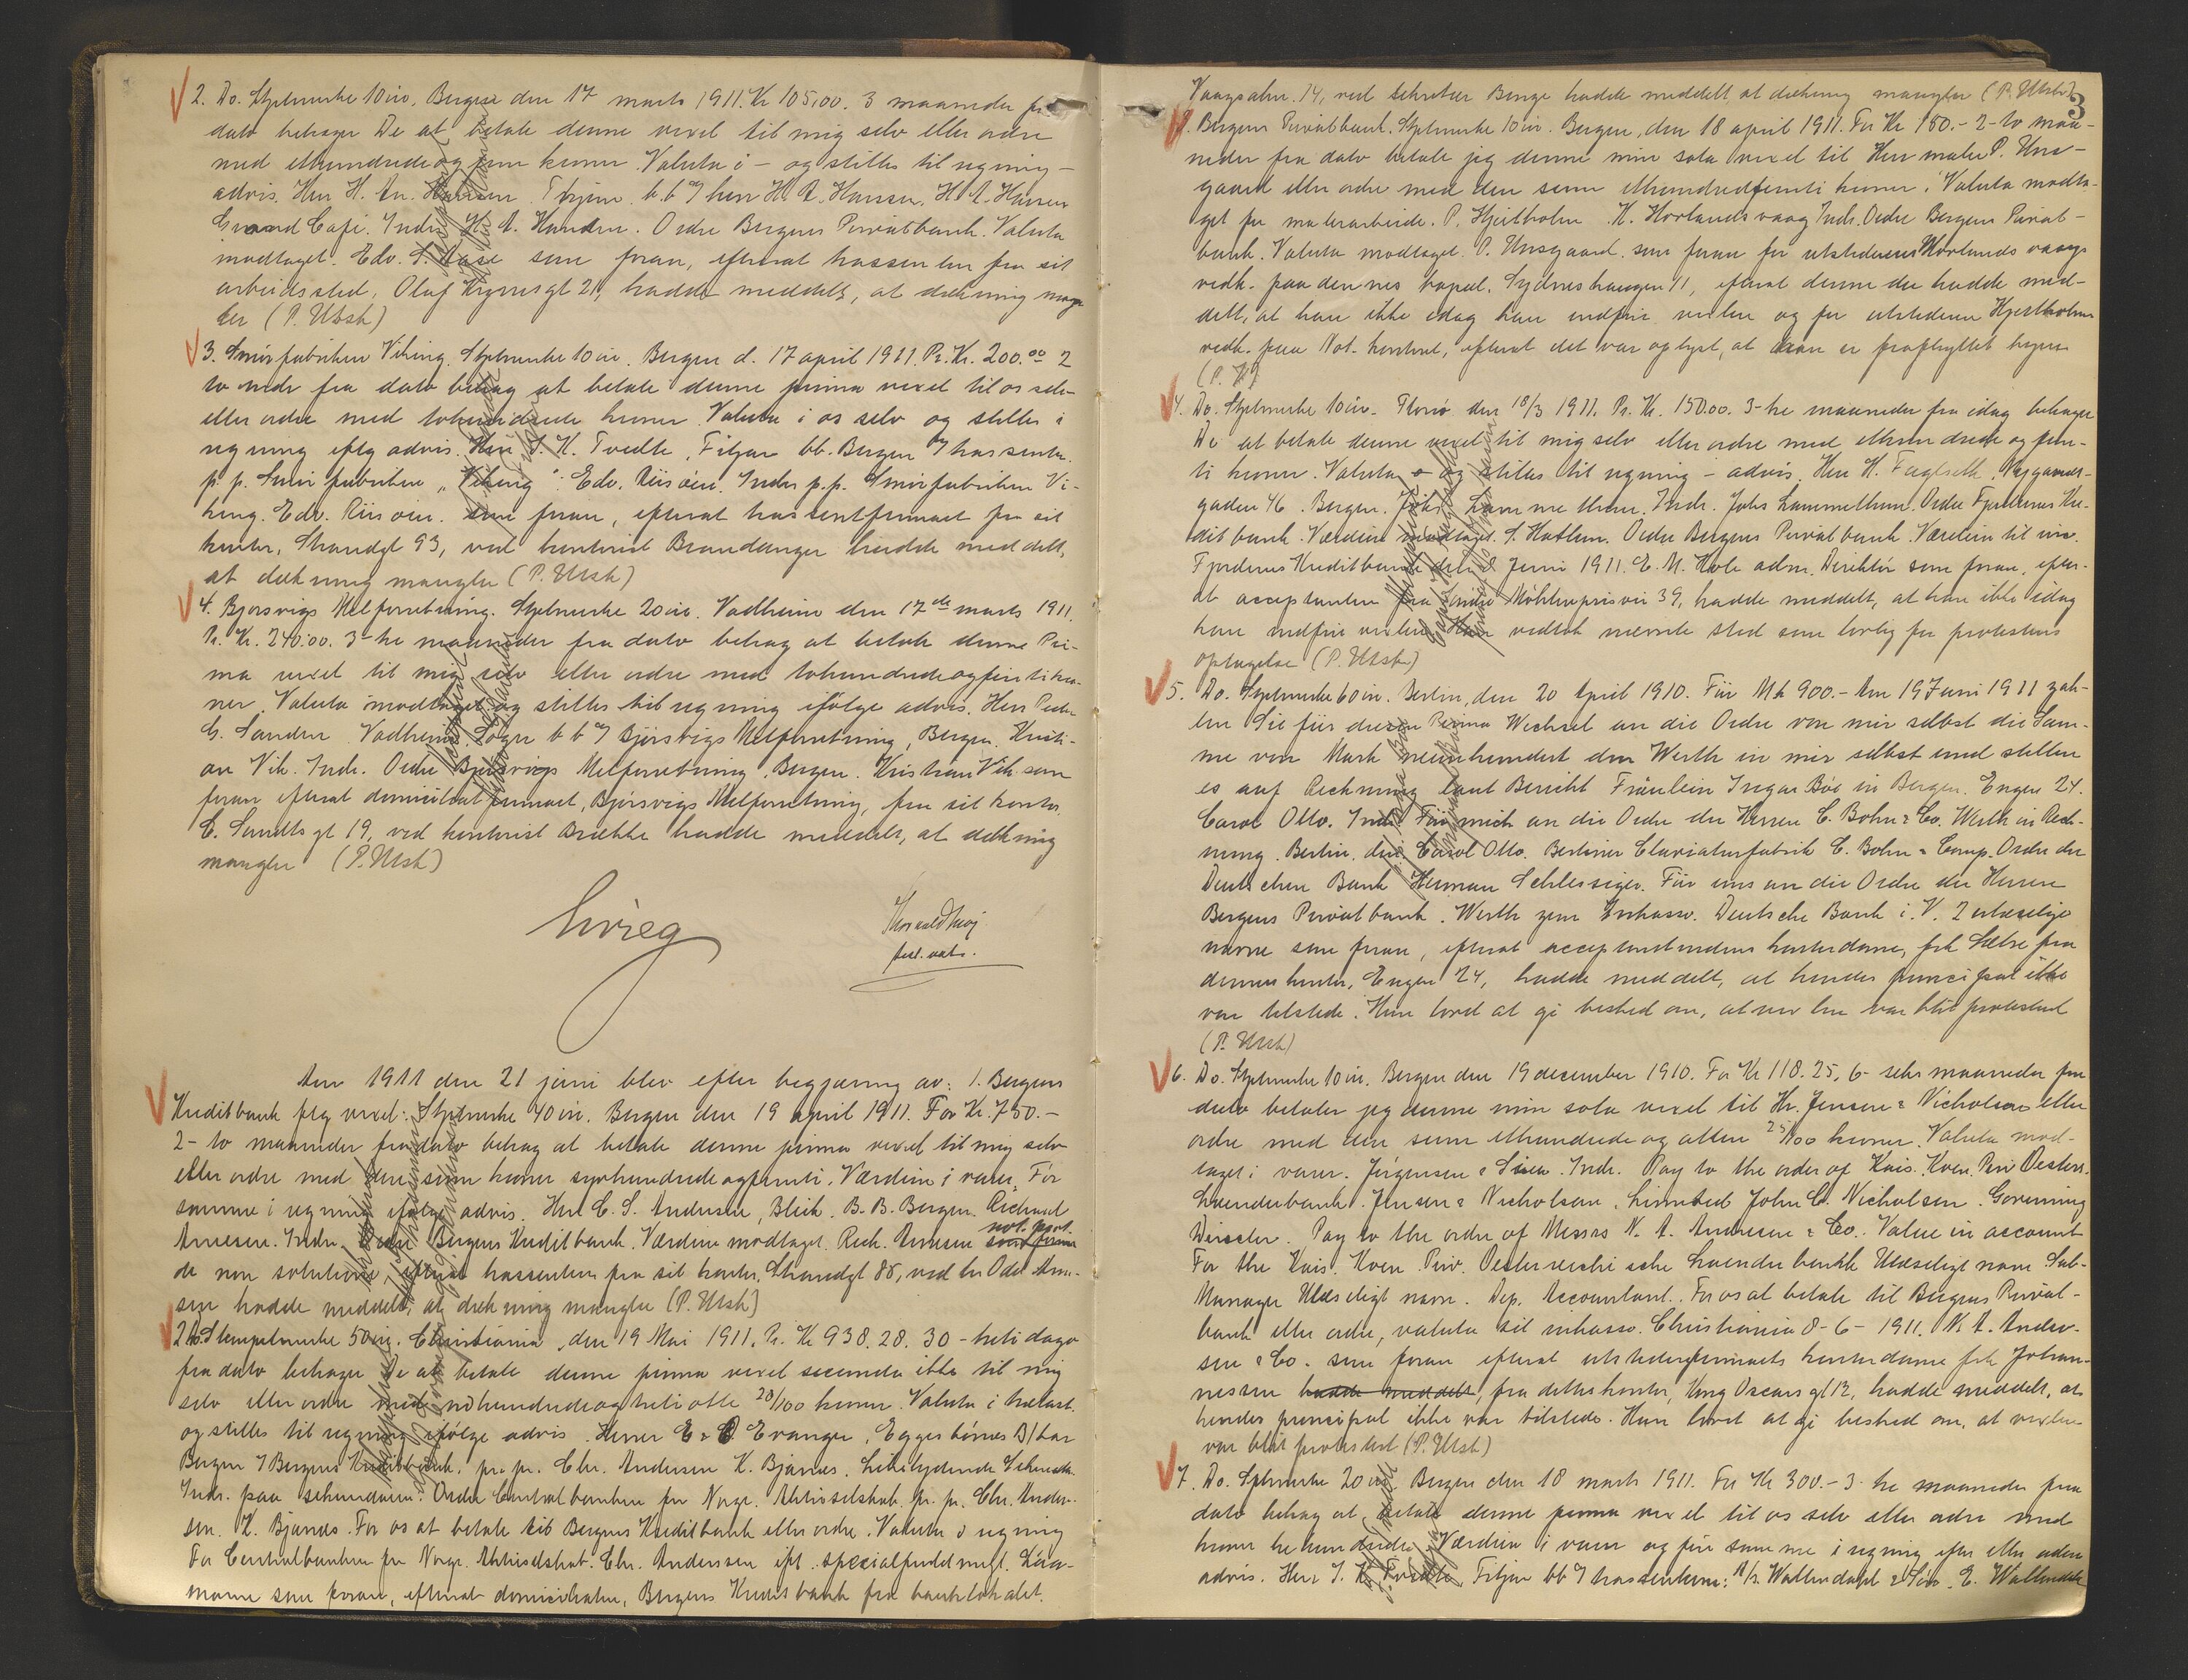 2. Do. Stplmerke 10 øre, Bergen den 17 marts 1911. Kr 105,00. 3 maaneder fra
dato behager De at betale denne vexel til mig selv eller ordre
med ethundrede og fem kroner. Valuta i – og stilles til regning –
advis. Herr H. An. Hansen t.b. b b herr H. A. Hansen. H. A. Hansen
Grand Café. Indr. H. A. Hansen. Ordre Bergens Privatbank. Valuta
modtaget. Edv. S. som foran, efterat trassenten fra sit
arbeidssted, Olaf Kyrresgt 21, hadde meddelt, at dækning mang
ler (P. Utsk)
3. Smørfabriken Viking. Stplmerke 10 øre. Bergen d. 17 april 1911. Pr. Kr. 200.00 2
to mdr fra dato behag at betale denne prima vexel til os selv
eller ordre med tohundrede kroner. Valuta i os selv og stilles i
regning efter advis. Herr J. K. Tvedte, Fitjar bb. Bergen trassenten.
p. p. Smørfabriken „Viking“. Edv. Riisøen. Indr. p.p. Smørfabriken Vi-
king. Edv. Riisøen. som foran, efterat trassentfirmaet fra sit
kontor, Strandgt 93, ved kontorist Brandanger hadde meddelt,
at dækning mangler (P. Utsk)
4. Bjørsvigs Melforretning. Stplmerke 20 øre. Vadheim den 17de marts 1911.
Pr. Kr. 240.00. 3-tre maaneder fra dato behag at betale denne Pri-
ma vexel til mig selv eller ordre med tohundrede og firti kro-
ner. Valuta modtaget og stilles til regning ifølge advis. Herr Peder
G. Sanden Vadheim, Sogn b b Bjørsvigs Melforretning, Bergen. Kristi-
an Vik. Indr. Ordre Bjørsvigs Melforretning, Bergen. Kristian Vik som
foran efterat domiciliatfirmaet, Bjørsvigs Melforretning, fra sit kontor,
C. Sundts gt 19, ved kontorist Brække hadde meddelt, at dækning
mangler (P. Utsk)
Grieg
Aar 1911 den 21 juni blev efter begjæring av: 1. Bergens
Kreditbank flg vexel: Stplmerke 40 øre. Bergen den 19 april 1911. For Kr. 750.-
2-to maaneder fra dato behag at betale denne prima vexel til mig selv
eller ordre med den sum kroner syvhundrede og femti. Værdien i varer. Før
samme i regning ifølge advis. Herr C. S. Andersen, Blek. B. B. Bergen. Richard
Arnesen. Indr. Ordre Bergens Kreditbank. Værdien modtaget. Rich. Arnesen som foran not. prot.
de non solutione efterat trassenten fra sit kontor, Strandgt 85, ved hr Odd Arne-
sen hadde meddelt, at dækning mangler (P. Utsk)
2. Do. Stempelmerke 50 øre. Christiania, den 19 Mai 1911. Pr. Kr 938.28. 30-treti dage
fra dato behager De at betale denne prima vexel secunda ikke til mig
selv eller ordre med nihundrede og treti otte 28/100 kroner. Valuta i trælast.
og stilles til regning ifølge advis. Herrer E. & O. Evanger, Eggesbønes B/har
Bergen Bergens Kreditbank. pr. pr. Chr. Andersen K. Bjanes. Likelydende Sekunda.
Indr. paa sekundaen: Ordre Centralbanken for Norge. Aktieselskab. pr. pr. Chr. Ander-
sen. K. Bjanes. For os at betale til Bergens Kreditbank eller ordre. Valuta i regning
For Centralbanken for Norge. Aktieselskab. Chr. Anderssen ifl. specialfuldmagt. Lau-
mann som foran, efterat domiciliaten, Bergens Kreditbank fra banklokalet.
3
Vaagsalm. 14, ved sekretær Benge hadde meddelt, at dækning mangler (P. Utsk)
3. Bergens Privatbank. Stplmerke 10 øre. Bergen, den 18 april 1911. For Kr 150.- 2-to maa-
neder fra dato betaler jeg denne min sola vexel til Herr maler P. Uns-
gaard eller ordre med den sum ethundredfemti kroner. Valuta modta-
get for malerarbeide. P. Hjertholm. K. Horlandsvaag Indr. Ordre Bergens Privat-
bank. Valuta modtaget. P. Unsgaard. som foran for utstederen Horlandsvaags
vedk. paa dennes bopæl. Sydneshaugen 11, efterat denne der hadde med-
delt, at han ikke idag kan indfri vexlen og for utstederen Hjertholms
vedk. paa Not. kontoret, efterat det var oplyst, at han er fraflyttet byen
(P. U)
4. Do. Stplmerke 10 øre. Florø den 18/3 1911. Pr. Kr. 150.00. 3-tre maaneder fra idag behager
De at betale denne vexel til mig selv eller ordre med ethundrede og fem-
ti kroner. Valuta – og stilles til regning – advis. Herr H. Faglseth, Nygaards-
gaden 46. Bergen. Johs Lammethun. Indr. Johs Lammethun. Ordre Fjordernes Kre-
ditbank. Værdien modtaget. S. Hatlem. Ordre Bergens Privatbank. Værdien til inc.
Fjordernes Kreditbank den 8 Juni 1911. E. M. Hole adm. Direktør som foran, efter-
at acceptanten fra Møhlenprisvei 39, hadde meddelt, at han ikke idag
kan indfri vexlen. Han vedtok nævnte sted som lovlig for protestens
optagelse (P. Utsk)
5. Do. Stplmerke 60 øre. Berlin, den 20 April 1910. Für Mk 900.- Am 19 Juni 1911 zah-
len Sie für diesen Prima Wechsel an die Ordre von mir selbst die Sum-
me von Mark neunhundert den Werth in mir selbst und stellen
es auf Rechnung laut Bericht Fräulein Inga Bøe in Bergen. Engen 24.
Carol Otto. Indr. Für mich an die Ordre der Herren C. Bohn & Co. Werth in Rech-
nung. Berlin. den. Carol Otto. Berliner Claviaturfabrik C. Bohn & Comp. Ordre der
Deutschen Bank Herman Schlessiger. Für uns an die Ordre der Herren
Bergens Privatbank. Werth zum Inkasso. Deutsche Bank i. V. 2 ulæselige
navne som foran, efterat acceptantindens kontordame, frk Sælre fra
dennes kontor, Engen 24, hadde meddelt, at hendes principal ikke
var tilstede. Hun lovet at gi besked om, at vexlen var blit protestert
(P. Utsk)
6. Do. Stplmerke 10 øre. Bergen den 19 december 1910. For Kr 118.25. 6- seks maaneder fra
dato betaler jeg denne min sola vexel til Hr. Jensen & Nicholson eller
ordre med den sum ethundrede og atten 25/100 kroner. Valuta mod-
taget i varer. Jørgensen & Sien. Indr. Pay to the order of Kais. Kön. Priv Oesterr.
Laenderbank. Jensen & Nicholson. Limited John C. Nicholson. Governing
Director. Pay to the order of Messrs N. A. Andresen & Co. Value in account
For the Kais. Kön. Priv. Oesterreichische Laenderbank Ulæseligt navn Sub-
Manager Ulæseligt navn. Dep. Accountant. For os at betale til Bergens Privat-
bank eller ordre, valuta til inkasso. Christiania 8-6-1911. N. A. Andre-
sen & Co. som foran efterat utstederfirmaets kontordame frk Johan-
nessen hadde meddelt, fra dettes kontor, Kong Oscars gt 12, hadde meddelt, at
hendes principal ikke var tilstede. Hun lovet at gi besked om, at vexlen
var blit protestert (P. Utsk)
7. Do. Stplmerke 20 øre Bergen den 18 marts 1911. For Kr 300.- 3- tre maaneder fra
dato behag at betale denne prima vexel til os selv eller ordre med
kroner trehundrede. Værdien i varer og før samme i regning efter eller uden
advis. Herr J. K. Tvedte, Fitjar bb trassenten: A/s. Wallendahl & Søn. E. Wallendahl